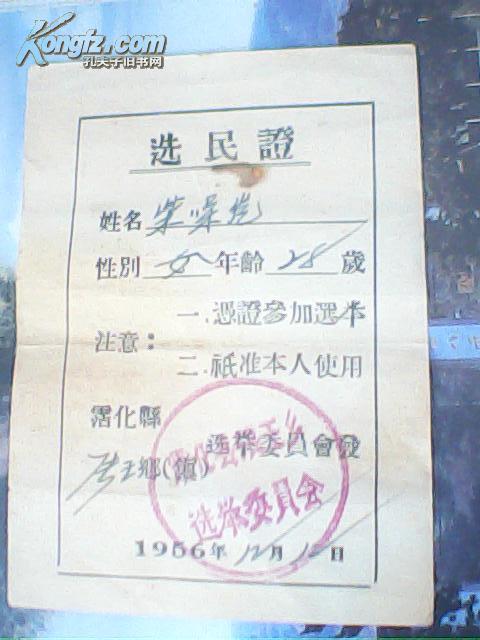 Kongfz.com
孔夫子旧书网
选民證
姓名 柴
性別 女 年齡 28 歲
注意：
一.憑證參加選举
二.祇准本人使用
霑化縣
王鄉(鎮)
选举委員會發
选举委員会
1956年12月1 日